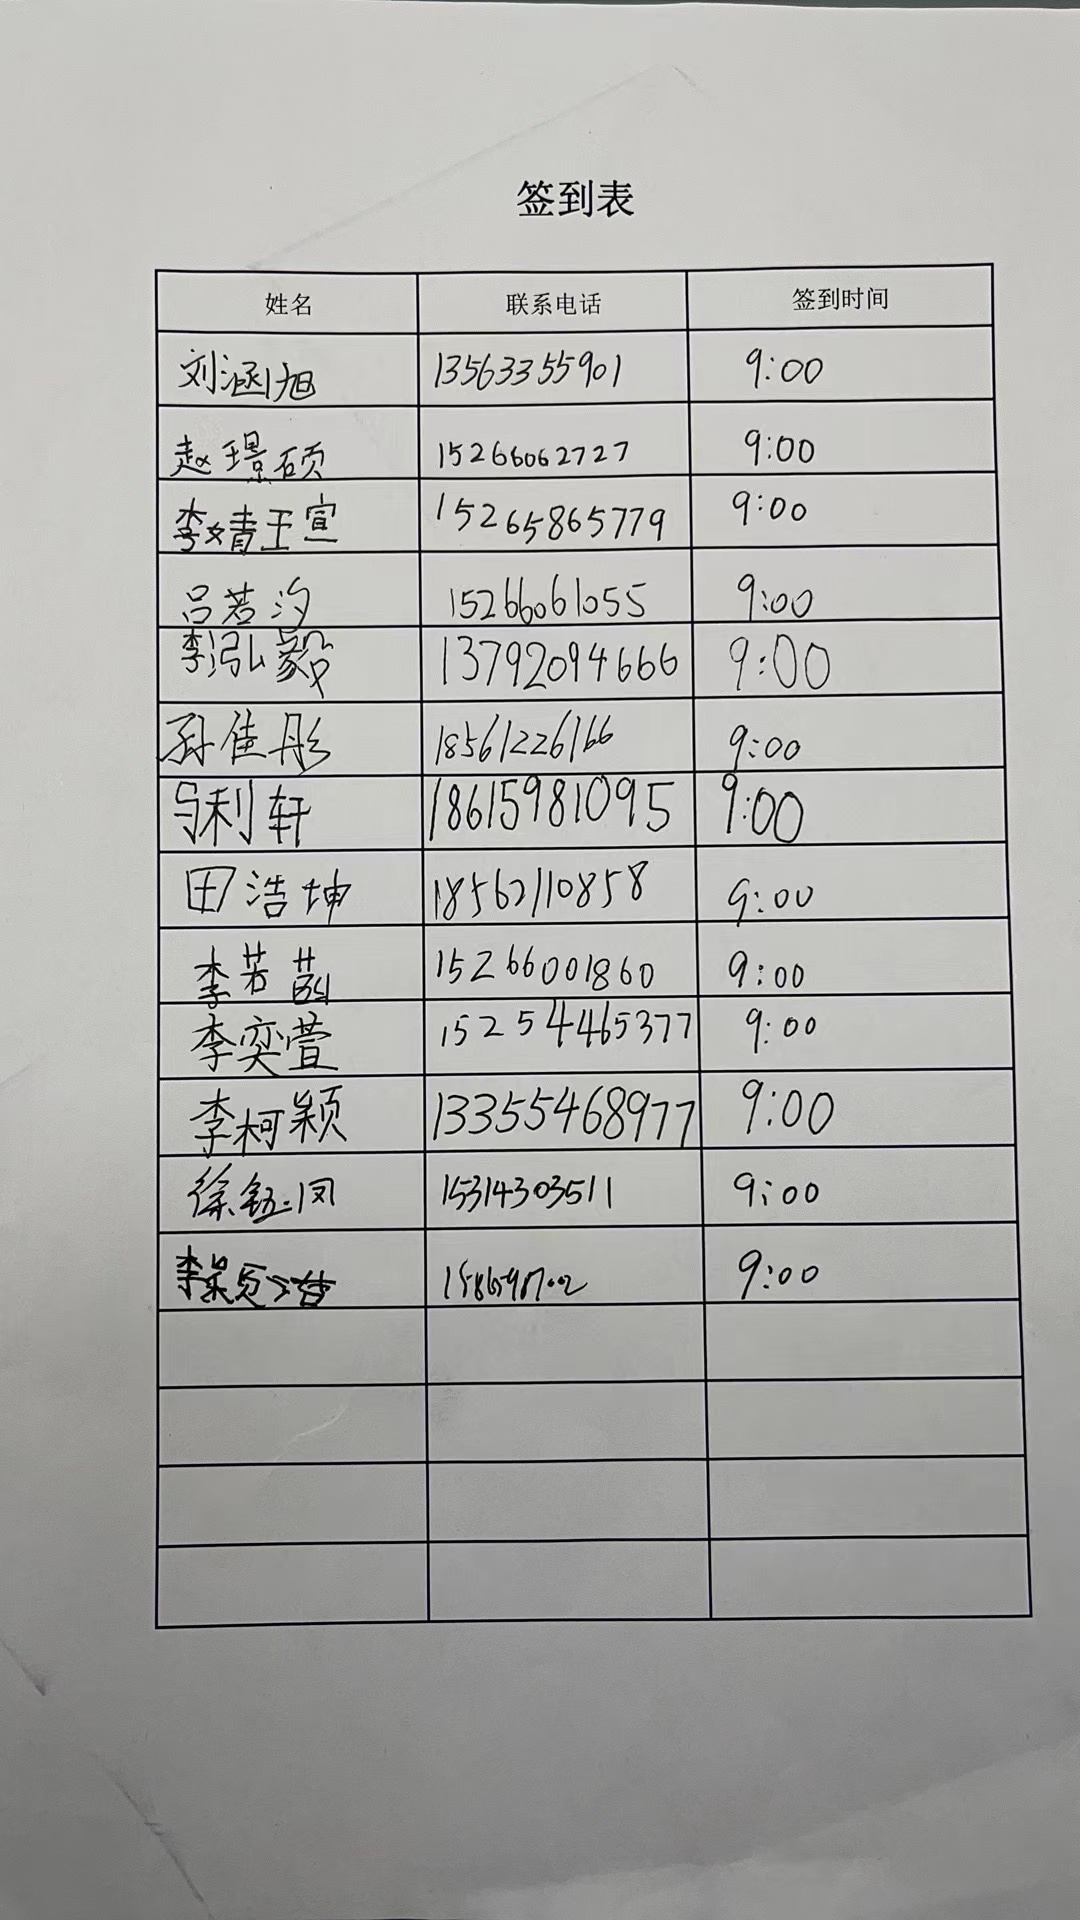 签到表
姓名 联系电话 签到时间
刘涵旭 13563355901 9:00
赵璟硕 15266062727 9:00
李婧瑄 15265865779 9:00
吕若汐 15266061055 9:00
李泓毅 13792094666 9:00
孙佳彤 18561226166 9:00
马利轩 18615981095 9:00
田浩坤 18562110858 9:00
李若菡 15266001860 9:00
李奕萱 15254465377 9:00
李柯颖 13355468977 9:00
徐钰凤 15314303511 9:00
李 9:00